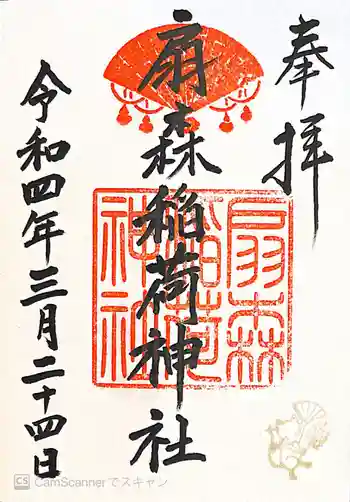 奉拝
扇森稲荷神社
扇森稲荷神社
令和四年三月二十四日
CS CamScannerでスキャン